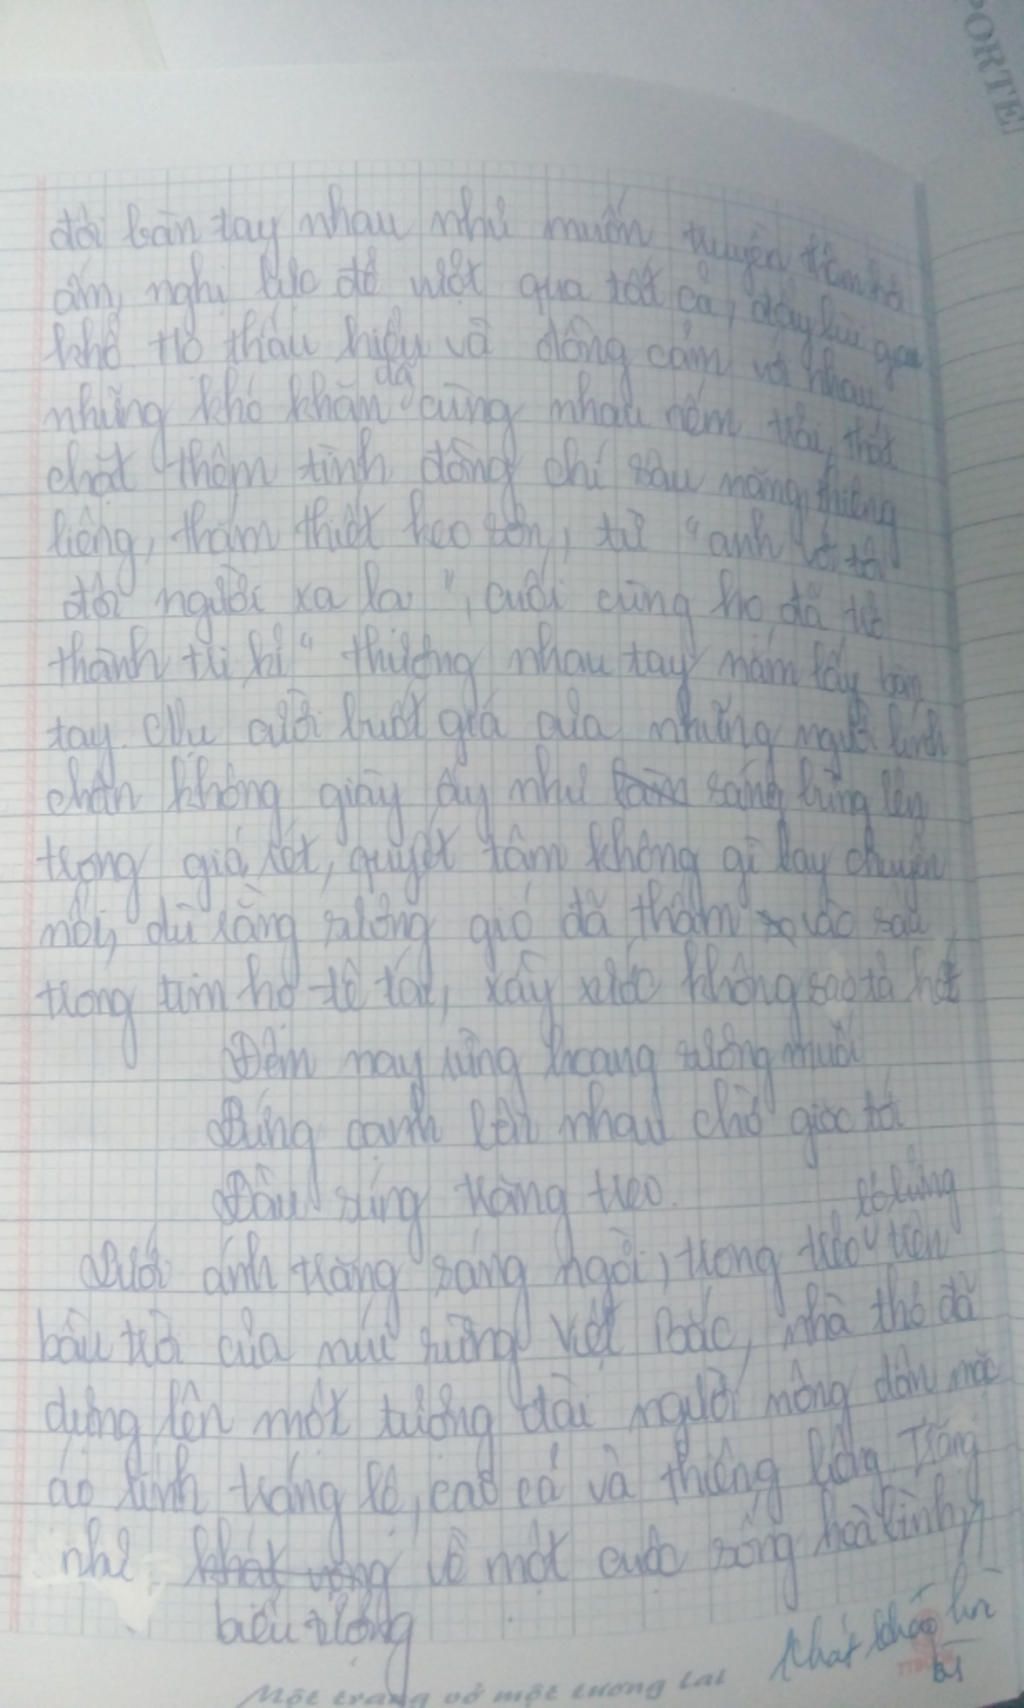 PORTE
đôi bàn tay nhau như muốn truyền thêm hơi
ấm, nghị lực để vượt qua tất cả, đẩy lùi gian
khổ Họ thấu hiểu và đồng cảm với nhau
những khó khăn đã cùng nhau nếm trải, thắt
chặt thêm tình đồng chí sâu nặng, thiêng
liêng, thắm thiết keo sơn, từ "anh với tôi
đôi người xa lạ", cuối cùng họ đã trở
thành tri kỉ "thương nhau tay nắm lấy bàn
tay. Nụ cười buốt giá của những người lính
chân không giày ấy như sáng bừng lên
trong giá rét, quyết tâm không gì lay chuyển
nổi, dù rằng sương gió đã thấm vào sâu
trong tim họ tê tái, xây xước không sao tả hết
Đêm nay rừng hoang sương muối
Đứng cạnh bên nhau chờ giặc tới
Đầu súng trăng treo.
lơ lửng
Dưới ánh trăng sáng ngời, trong trẻo trên
bầu trời của núi rừng Việt Bắc, nhà thơ đã
dựng lên một tượng đài người nông dân mặc
áo lính tráng lệ, cao cả và thiêng liêng Trăng
như khát vọng về một cuộc sống hoà bình,
biểu tượng
khát khao lớn
Một trang vở một tương lai